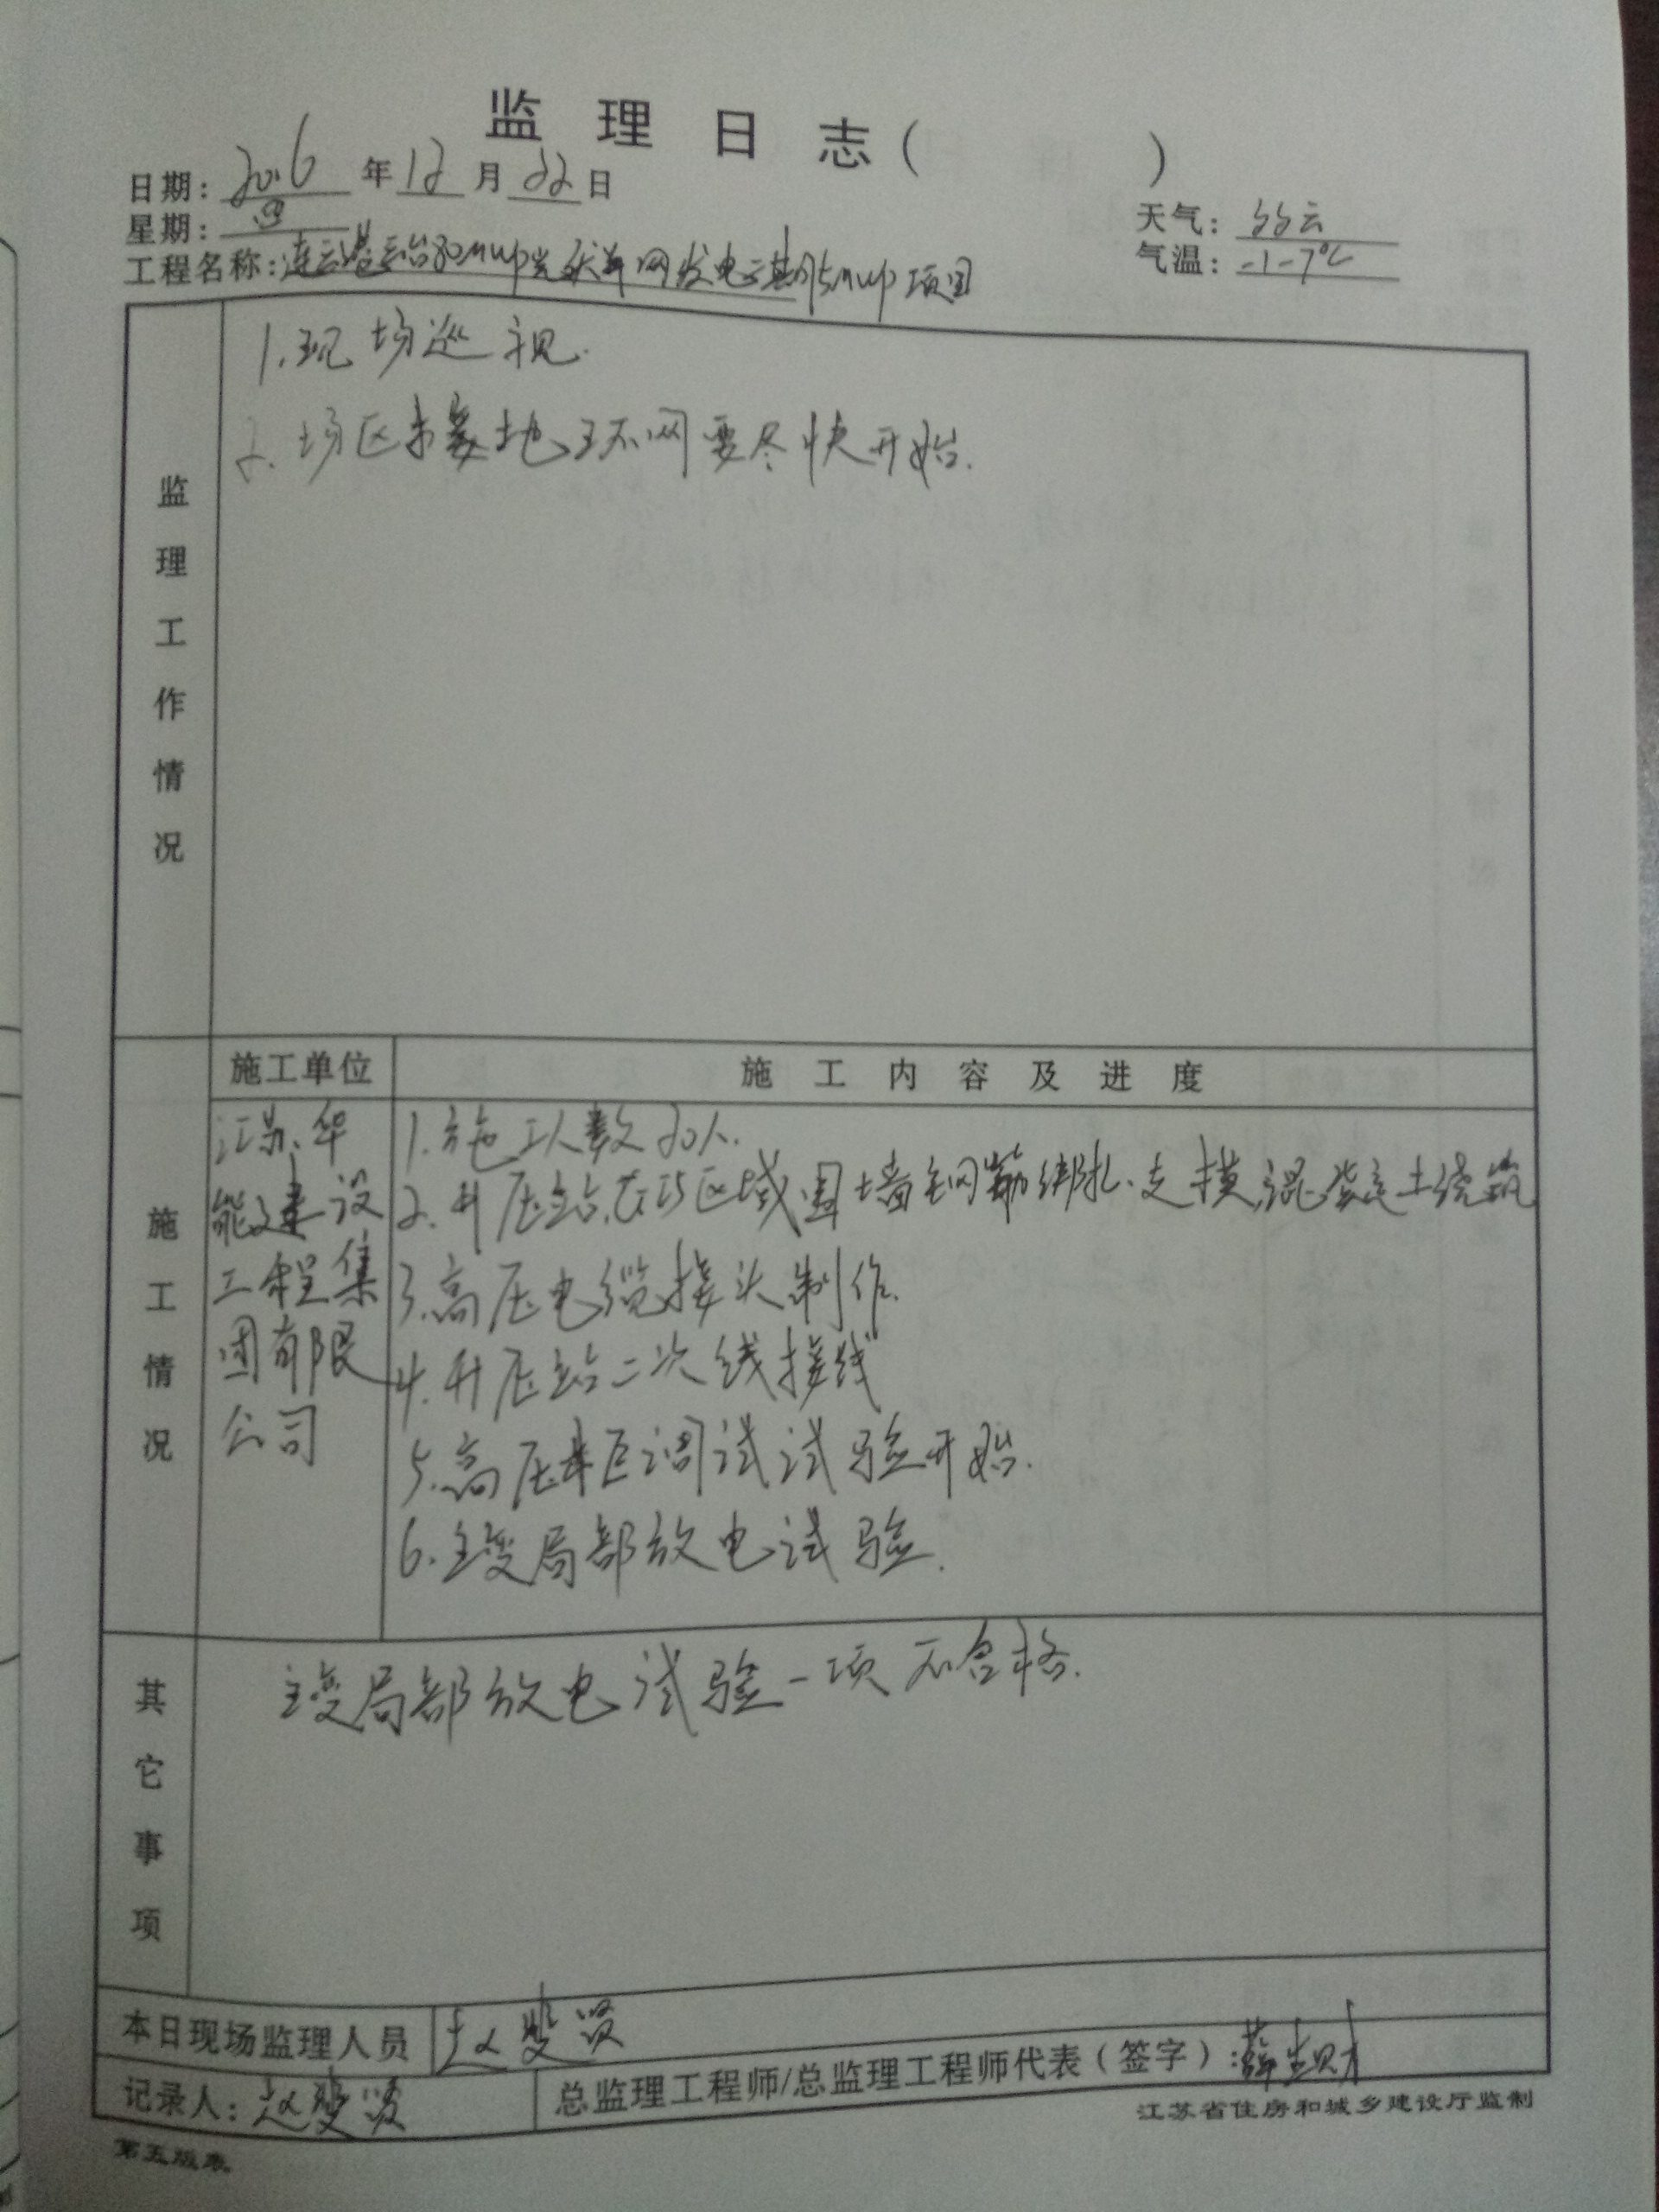 监理日志( )
日期: 2016 年 12 月 22 日
星期: 四
天气: 多云
工程名称: 连云港云台80MWp光伏并网发电二期15MWp项目
气温: -1-7℃
监理工作情况
1.现场巡视.
2.场区接地环网要尽快开始.
施工情况
施工单位
施工内容及进度
江苏华
能建设
工程集
团有限
公司
1.施工人数20人.
2.升压站、区域围墙钢筋绑扎、支模,混凝土浇筑
3.高压电缆接头制作.
4.升压站二次线接线
5.高压柜调试试验开始.
6.主变局部放电试验.
其它事项
主变局部放电试验一项不合格.
本日现场监理人员 赵斐贤
记录人: 赵斐贤
总监理工程师/总监理工程师代表(签字): 薛生财
江苏省住房和城乡建设厅监制
第五版表